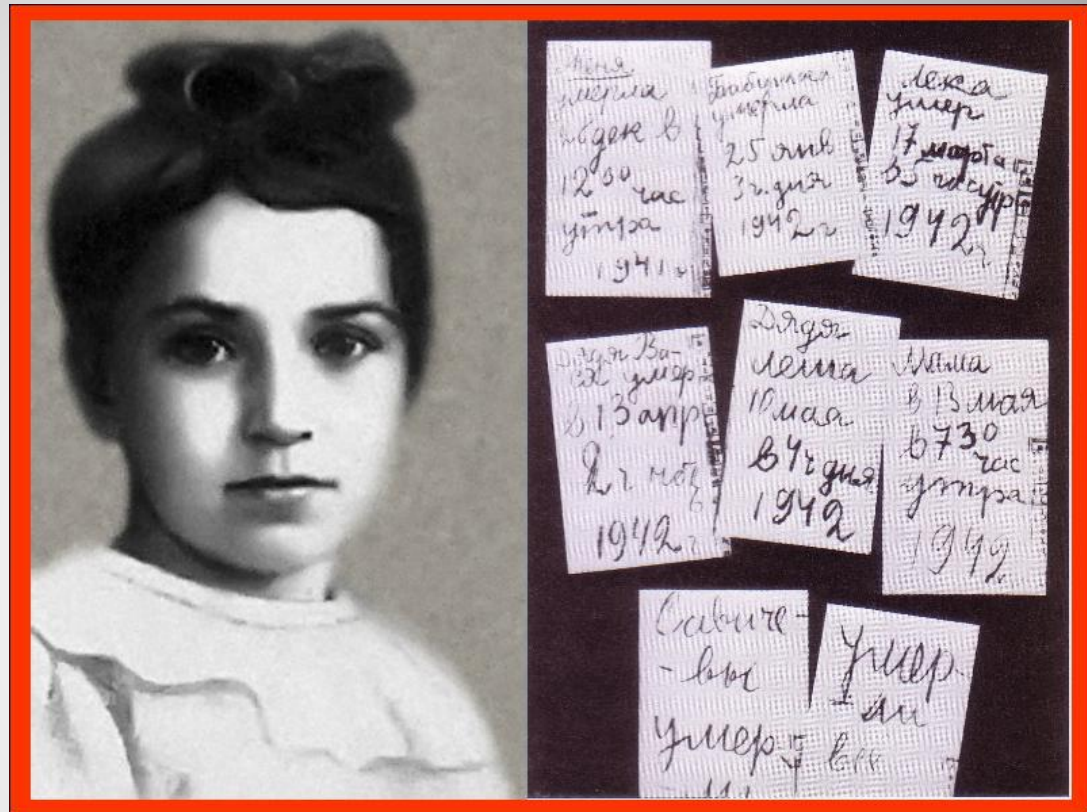 Женя
умерла
28 дек в
12 30 час
утра
1941 г
Бабушка
умерла
25 янв
3 ч. дня
1942 г
Лека
умер
17 марта
в 5 час утр
1942 г
Дядя Ва-
ся умер
в 13 апр
2 ч ночь
1942 г
Дядя
Леша
10 мая
в 4 ч дня
1942
Мама
в 13 мая
в 7 30
час
утра
1942
Савиче-
-вы
умер
ли
Умер-
ли
все